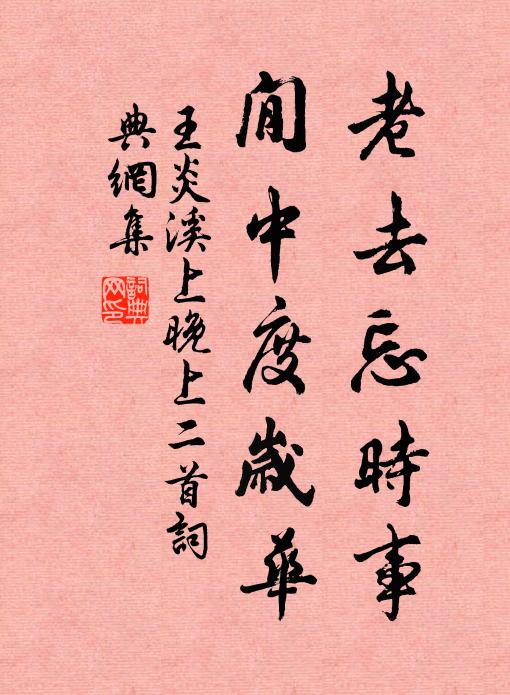 老去忘時事
閒中度歲華
王炎溪上晚上二首詞
典網集
詞典网印